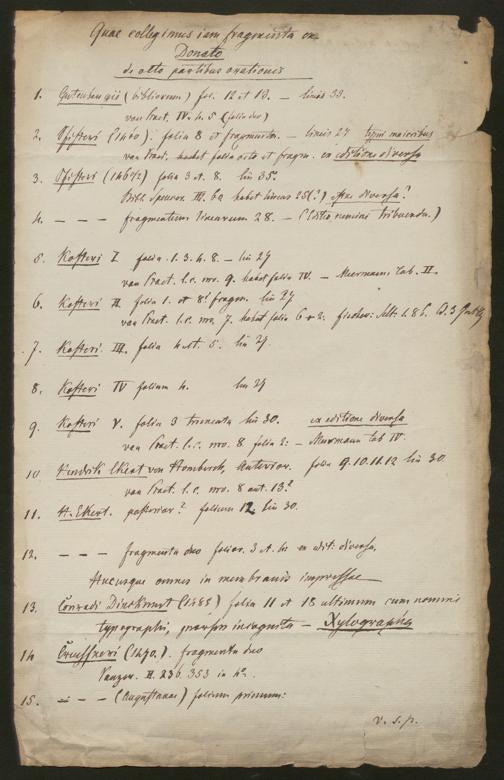 Quae collegimus iam fragmenta ex
Donato
de octo partibus orationis
1. Gutenbergii (bibliorum) fol. 12 et 13. — linis 33.
van Praet. IV. n. 5 (folia duo)
2. Pfisteri (1460). folia 8 et fragmenta. — lineis 27 typis maioribus
van Praet. habet folia octo et fragm. ex editione diversa
3. Pfisteri (1462) folia 3 et 8. lin 35.
Bibl. Spencer. III. 62 habet lineas 25(?) estne diversa?
4. — — — fragmentum linearum 28. — ( nemini tribuenda.)
5. Kosteri I folia. 1. 3. 4. 8. — lin 27
van Praet. l.c. nro. 9. habet folia IV. — Meermann tab. II.
6. Kosteri II folia 1. et 8. fragm. lin 27
van Praet. l.c. nro. 7. habet folia 6 + 2: fischer:
7. Kosteri III. folia 4 et. 5. lin 27.
8. Kosteri IV folium 4. lin 27
9. Kosteri V. folia 3 truncata lin 30. ex editione diversa
van Praet. l.c. nro. 8 folia 2: — Meermann tab IV.
10 Hendrik von Homberch, anterior. folia 9. 10. 11. 12 lin 30.
van Praet. l.c. nro. 8 aut. 13?
11. H. Ekert. posterior? folium 12. lin 30.
12. — — — fragmenta duo folior. 3 et. 4. ex edit: diversa.
Hucusque omnes in membranis impressae
13. Conradi Dinckmut (1485) folia 11 et 18 ultimum cum nomine
typographi, prorsus incognita — Xylographa
14 Creussneri (1470.). fragmenta duo
Panzer. II. 236. 353 in 4o.
15. — — — (Augustanae) folium primum:
v. s. p.